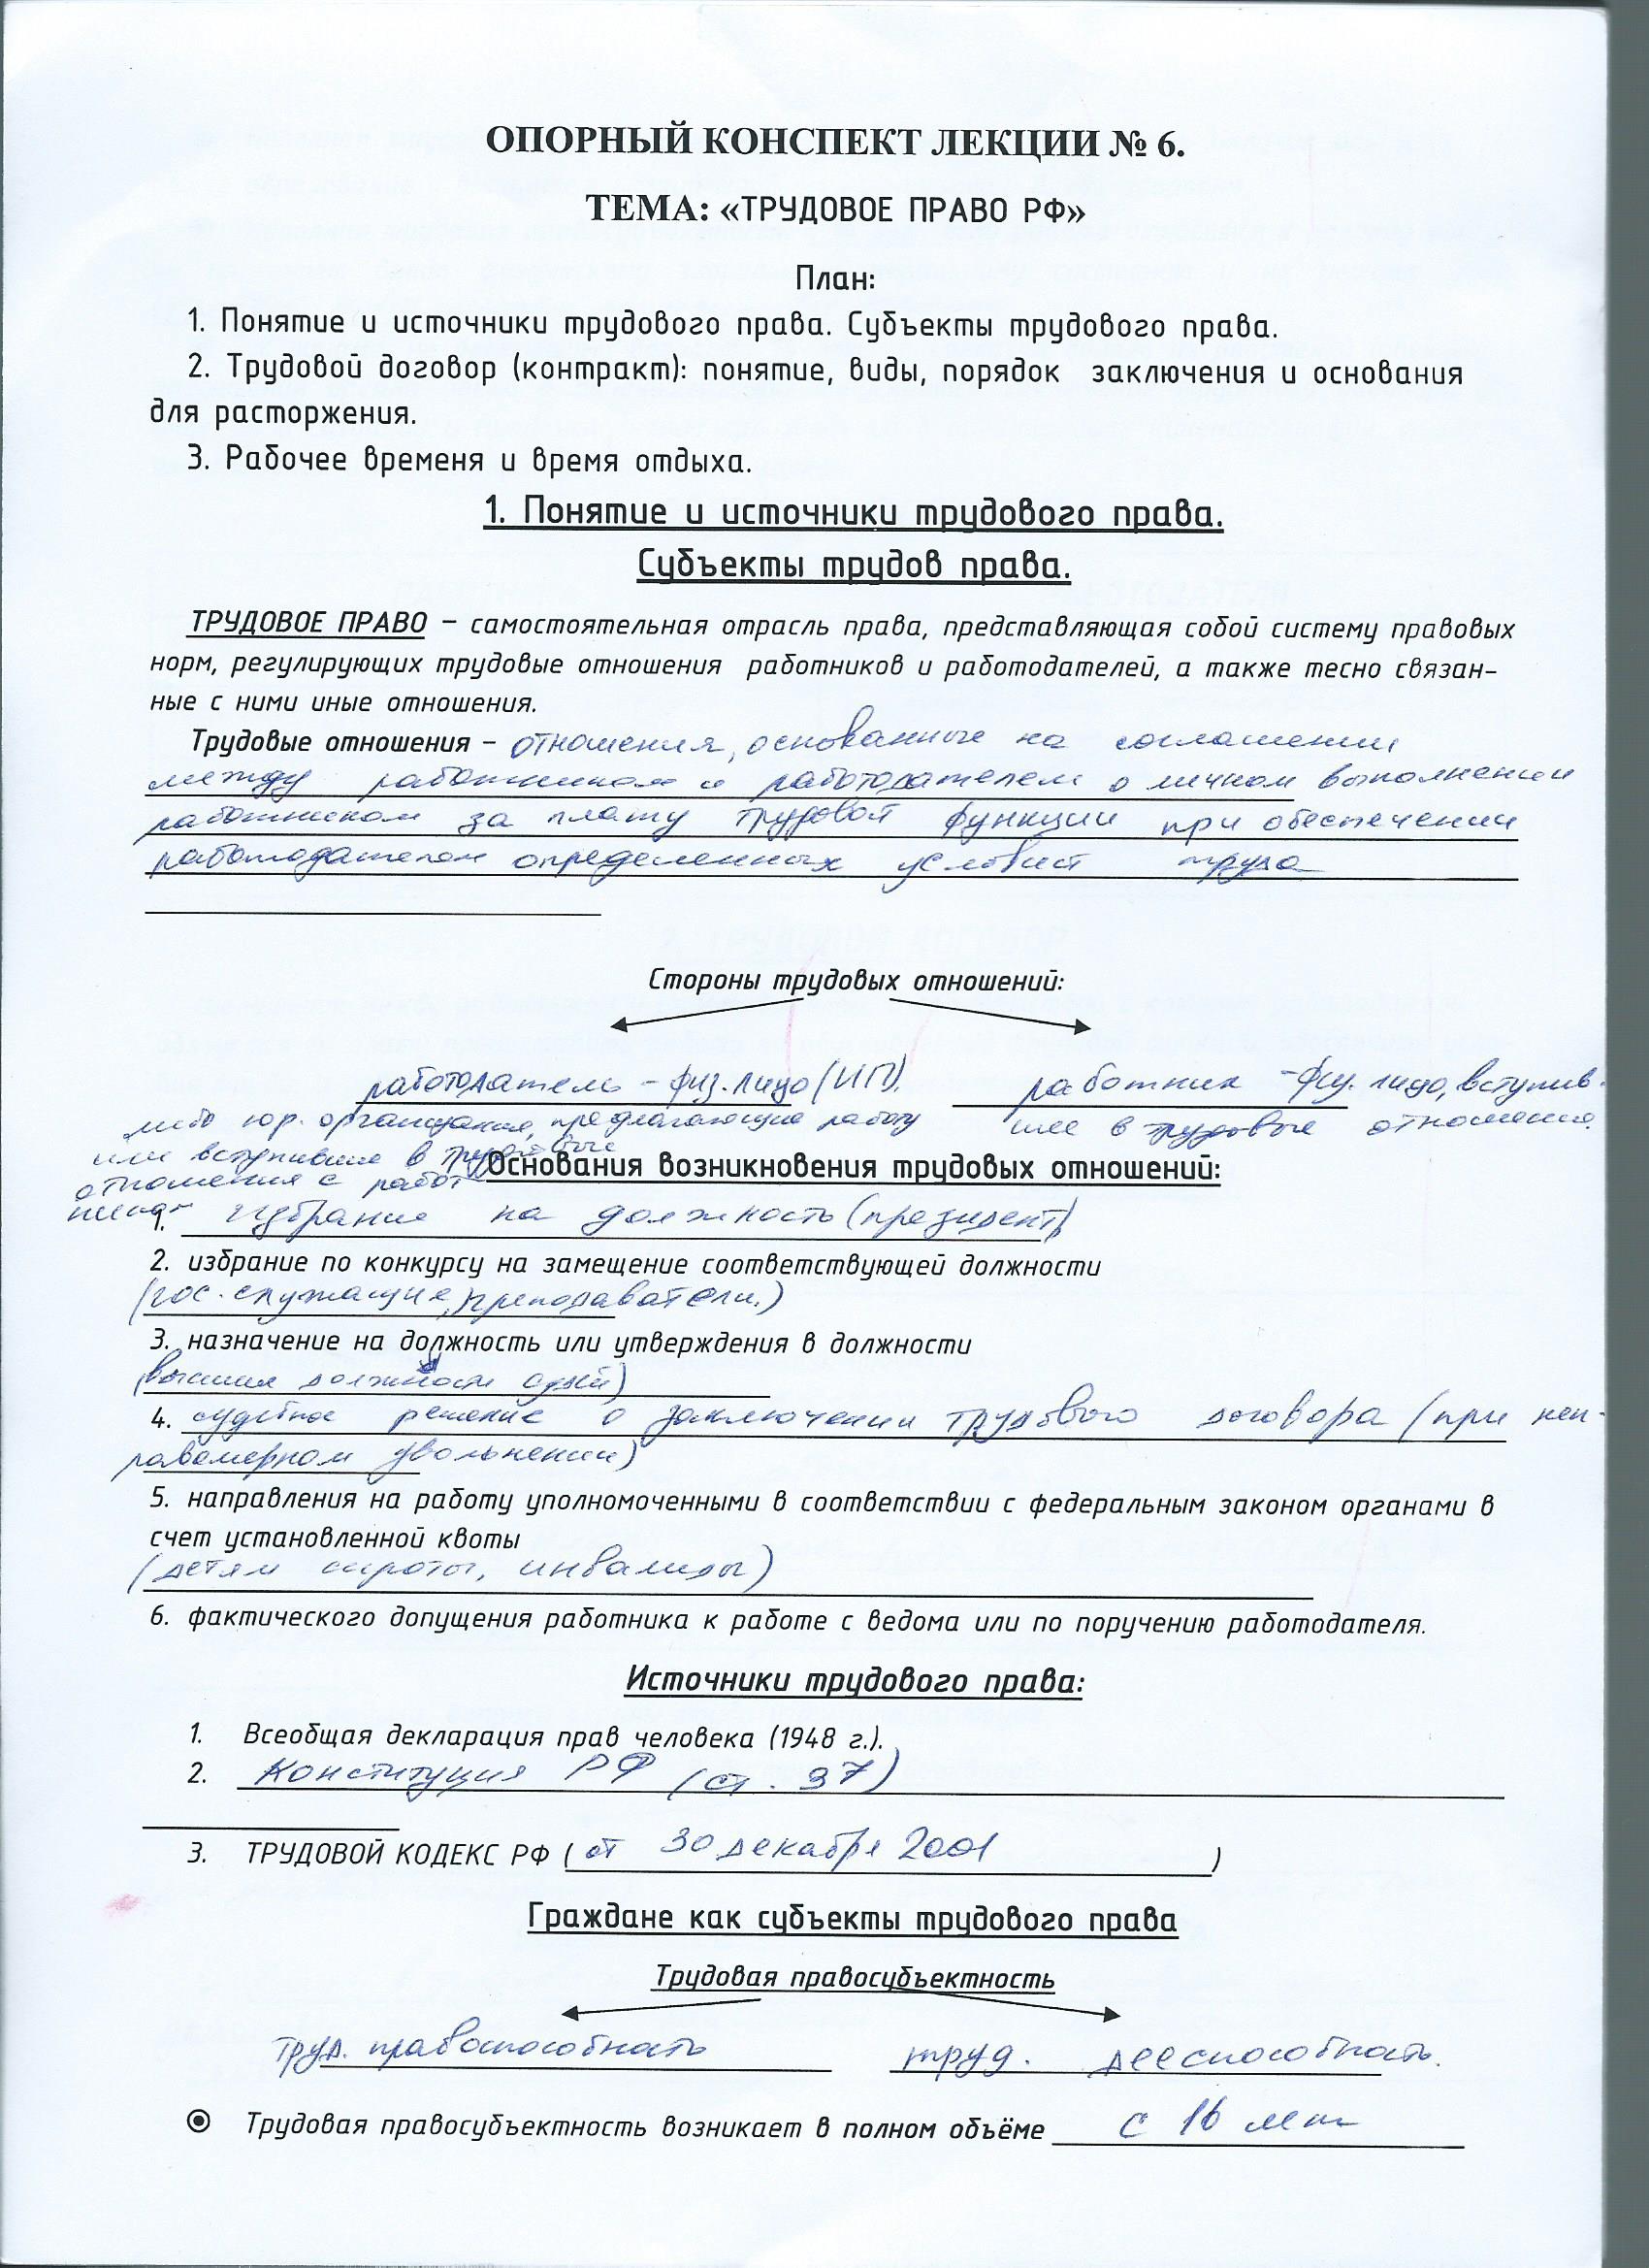 ОПОРНЫЙ КОНСПЕКТ ЛЕКЦИИ № 6.
ТЕМА: «ТРУДОВОЕ ПРАВО РФ»
План:
1. Понятие и источники трудового права. Субъекты трудового права.
2. Трудовой договор (контракт): понятие, виды, порядок заключения и основания
для расторжения.
3. Рабочее временя и время отдыха.
1. Понятие и источники трудового права.
Субъекты трудов права.
ТРУДОВОЕ ПРАВО – самостоятельная отрасль права, представляющая собой систему правовых
норм, регулирующих трудовые отношения работников и работодателей, а также тесно связан-
ные с ними иные отношения.
Трудовые отношения – отношения, основанные на соглашении
между работником и работодателем о личном выполнении
работником за плату трудовой функции при обеспечении
работодателем определенных условий труда
Стороны трудовых отношений:
работодатель – физ. лицо (ИП), работник – физ. лицо, вступив-
либо юр. организация, предлагающие работу шее в трудовые отношения.
или вступившие в трудовые
Основания возникновения трудовых отношений:
отношения с работ
ником
1. Избрание на должность (президент)
2. избрание по конкурсу на замещение соответствующей должности
(гос. служащие, преподаватели.)
3. назначение на должность или утверждения в должности
(высшие должности судей)
4. судебное решение о заключении трудового договора (при неп-
равомерном увольнении)
5. направления на работу уполномоченными в соответствии с федеральным законом органами в
счет установленной квоты
(детям сироты, инвалиды)
6. фактического допущения работника к работе с ведома или по поручению работодателя.
Источники трудового права:
1. Всеобщая декларация прав человека (1948 г.).
2. Конституция РФ (ст. 37)
3. ТРУДОВОЙ КОДЕКС РФ ( от 30 декабря 2001 )
Граждане как субъекты трудового права
Трудовая правосубъектность
труд. правоспособность труд. дееспособность.
Трудовая правосубъектность возникает в полном объёме с 16 лет